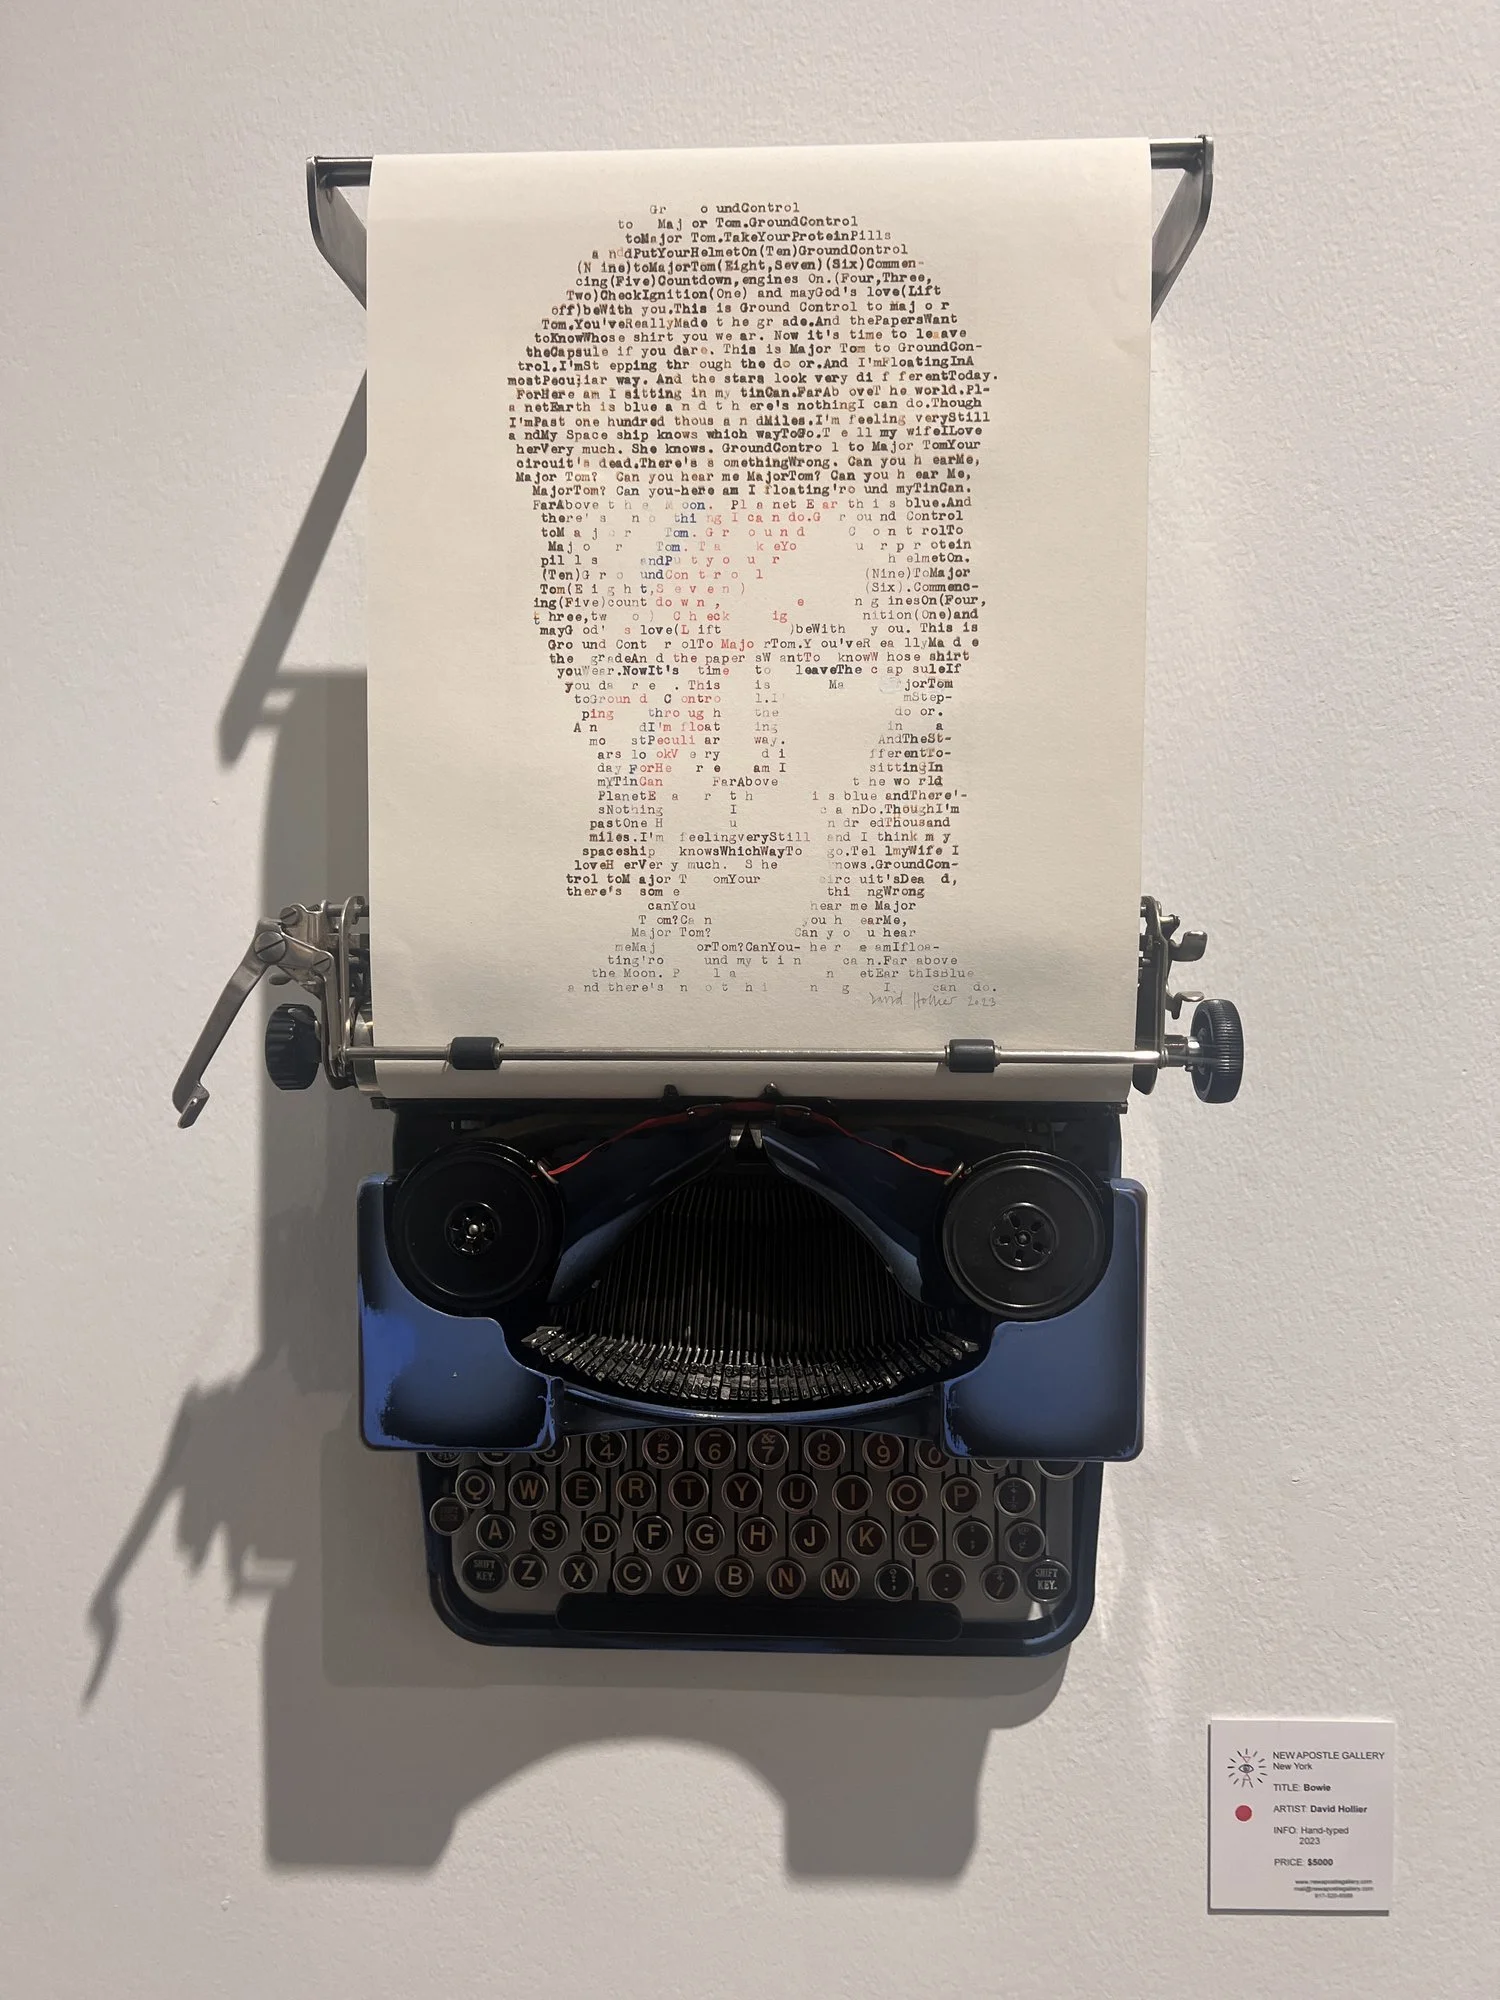 Gr o undControl
to Maj or Tom.GroundControl
toMajor Tom.TakeYourProteinPills
a ndPutYourHelmetOn(Ten)GroundControl
(N ine)toMajorTom(Eight,Seven)(Six)Commen-
cing(Five)Countdown,engines On.(Four,Three,
Two)CheckIgnition(One) and mayGod's love(Lift
off)beWith you.This is Ground Control to maj o r
Tom.You'veReallyMade t he gr ade.And thePapersWant
toKnowWhose shirt you we ar. Now it's time to leaave
theCapsule if you dare. This is Major Tom to GroundCon-
trol.I'mSt epping thr ough the do or.And I'mFloatingInA
mostPeculiar way. And the stars look very di f ferentToday.
ForHere am I sitting in my tinCan.FarAb oveT he world.Pl-
a netEarth is blue a n d t h ere's nothingI can do.Though
I'mPast one hundred thous a n dMiles.I'm feeling veryStill
a ndMy Space ship knows which wayToGo.T e ll my wifeILove
herVery much. She knows. GroundContro l to Major TomYour
circuit's dead.There's s omethingWrong. Can you h earMe,
Major Tom? Can you hear me MajorTom? Can you h ear Me,
MajorTom? Can you-here am I floating'ro und myTinCan.
FarAbove t h e Moon. Pl a net E ar th i s blue.And
there' s n o thi ng I ca n do.G r ou nd Control
toM a j o r Tom. G r o u n d C o n t rolTo
Maj o r Tom. T a k eYo u r p r otein
pil l s andPu t y o u r h elmetOn.
(Ten)G r o undCon t r o l (Nine)ToMajor
Tom(E i g h t,S e v e n ) (Six).Commenc-
ing(Five)count do w n , e n g inesOn(Four,
t hree,tw o ) C h eck ig nition(One)and
mayG od' s love(L ift )beWith y ou. This is
Gro und Cont r olTo Majo rTom.Y ou'veR ea llyMa d e
the gradeAn d the paper sW antTo knowW hose shirt
youWear.NowIt's time to leaveThe c ap suleIf
you da r e . This is Ma jorTom
toGroun d C ontro l.I' mStep-
ping thro ug h the do or.
A n dI'm float ing in a
mo stPeculi ar way. AndTheSt-
ars lo okV e ry d i fferentTo-
day ForHe r e am I sittingIn
myTinCan FarAbove t he wo rld
PlanetE a r t h i s blue andThere'-
sNothing I c a nDo.ThoughI'm
pastOne H u n dr edThousand
miles.I'm feelingveryStill and I think m y
spaceship knowsWhichWayTo go.Tel lmyWife I
loveH erVer y much. S he knows.GroundCon-
trol toM ajor T omYour circ uit'sDea d,
there's som e thi ngWrong
canYou hear me Major
T om?Ca n you h earMe,
Major Tom? Can y o u hear
meMaj orTom?CanYou- he r e amIfloa-
ting'ro und my t i n ca n.Far above
the Moon. P l a n etEar thIsBlue
a nd there's n o t h i n g I can do.
David Hollier 2023
4 5 6 & 7 8 9 0
Q W E R T Y U I O P
A S D F G H J K L
SHIFT KEY. Z X C V B N M SHIFT KEY.
NEW APOSTLE GALLERY
New York
TITLE: Bowie
ARTIST: David Hollier
INFO: Hand-typed
2023
PRICE: $5000
www.newapostlegallery.com
mail@newapostlegallery.com